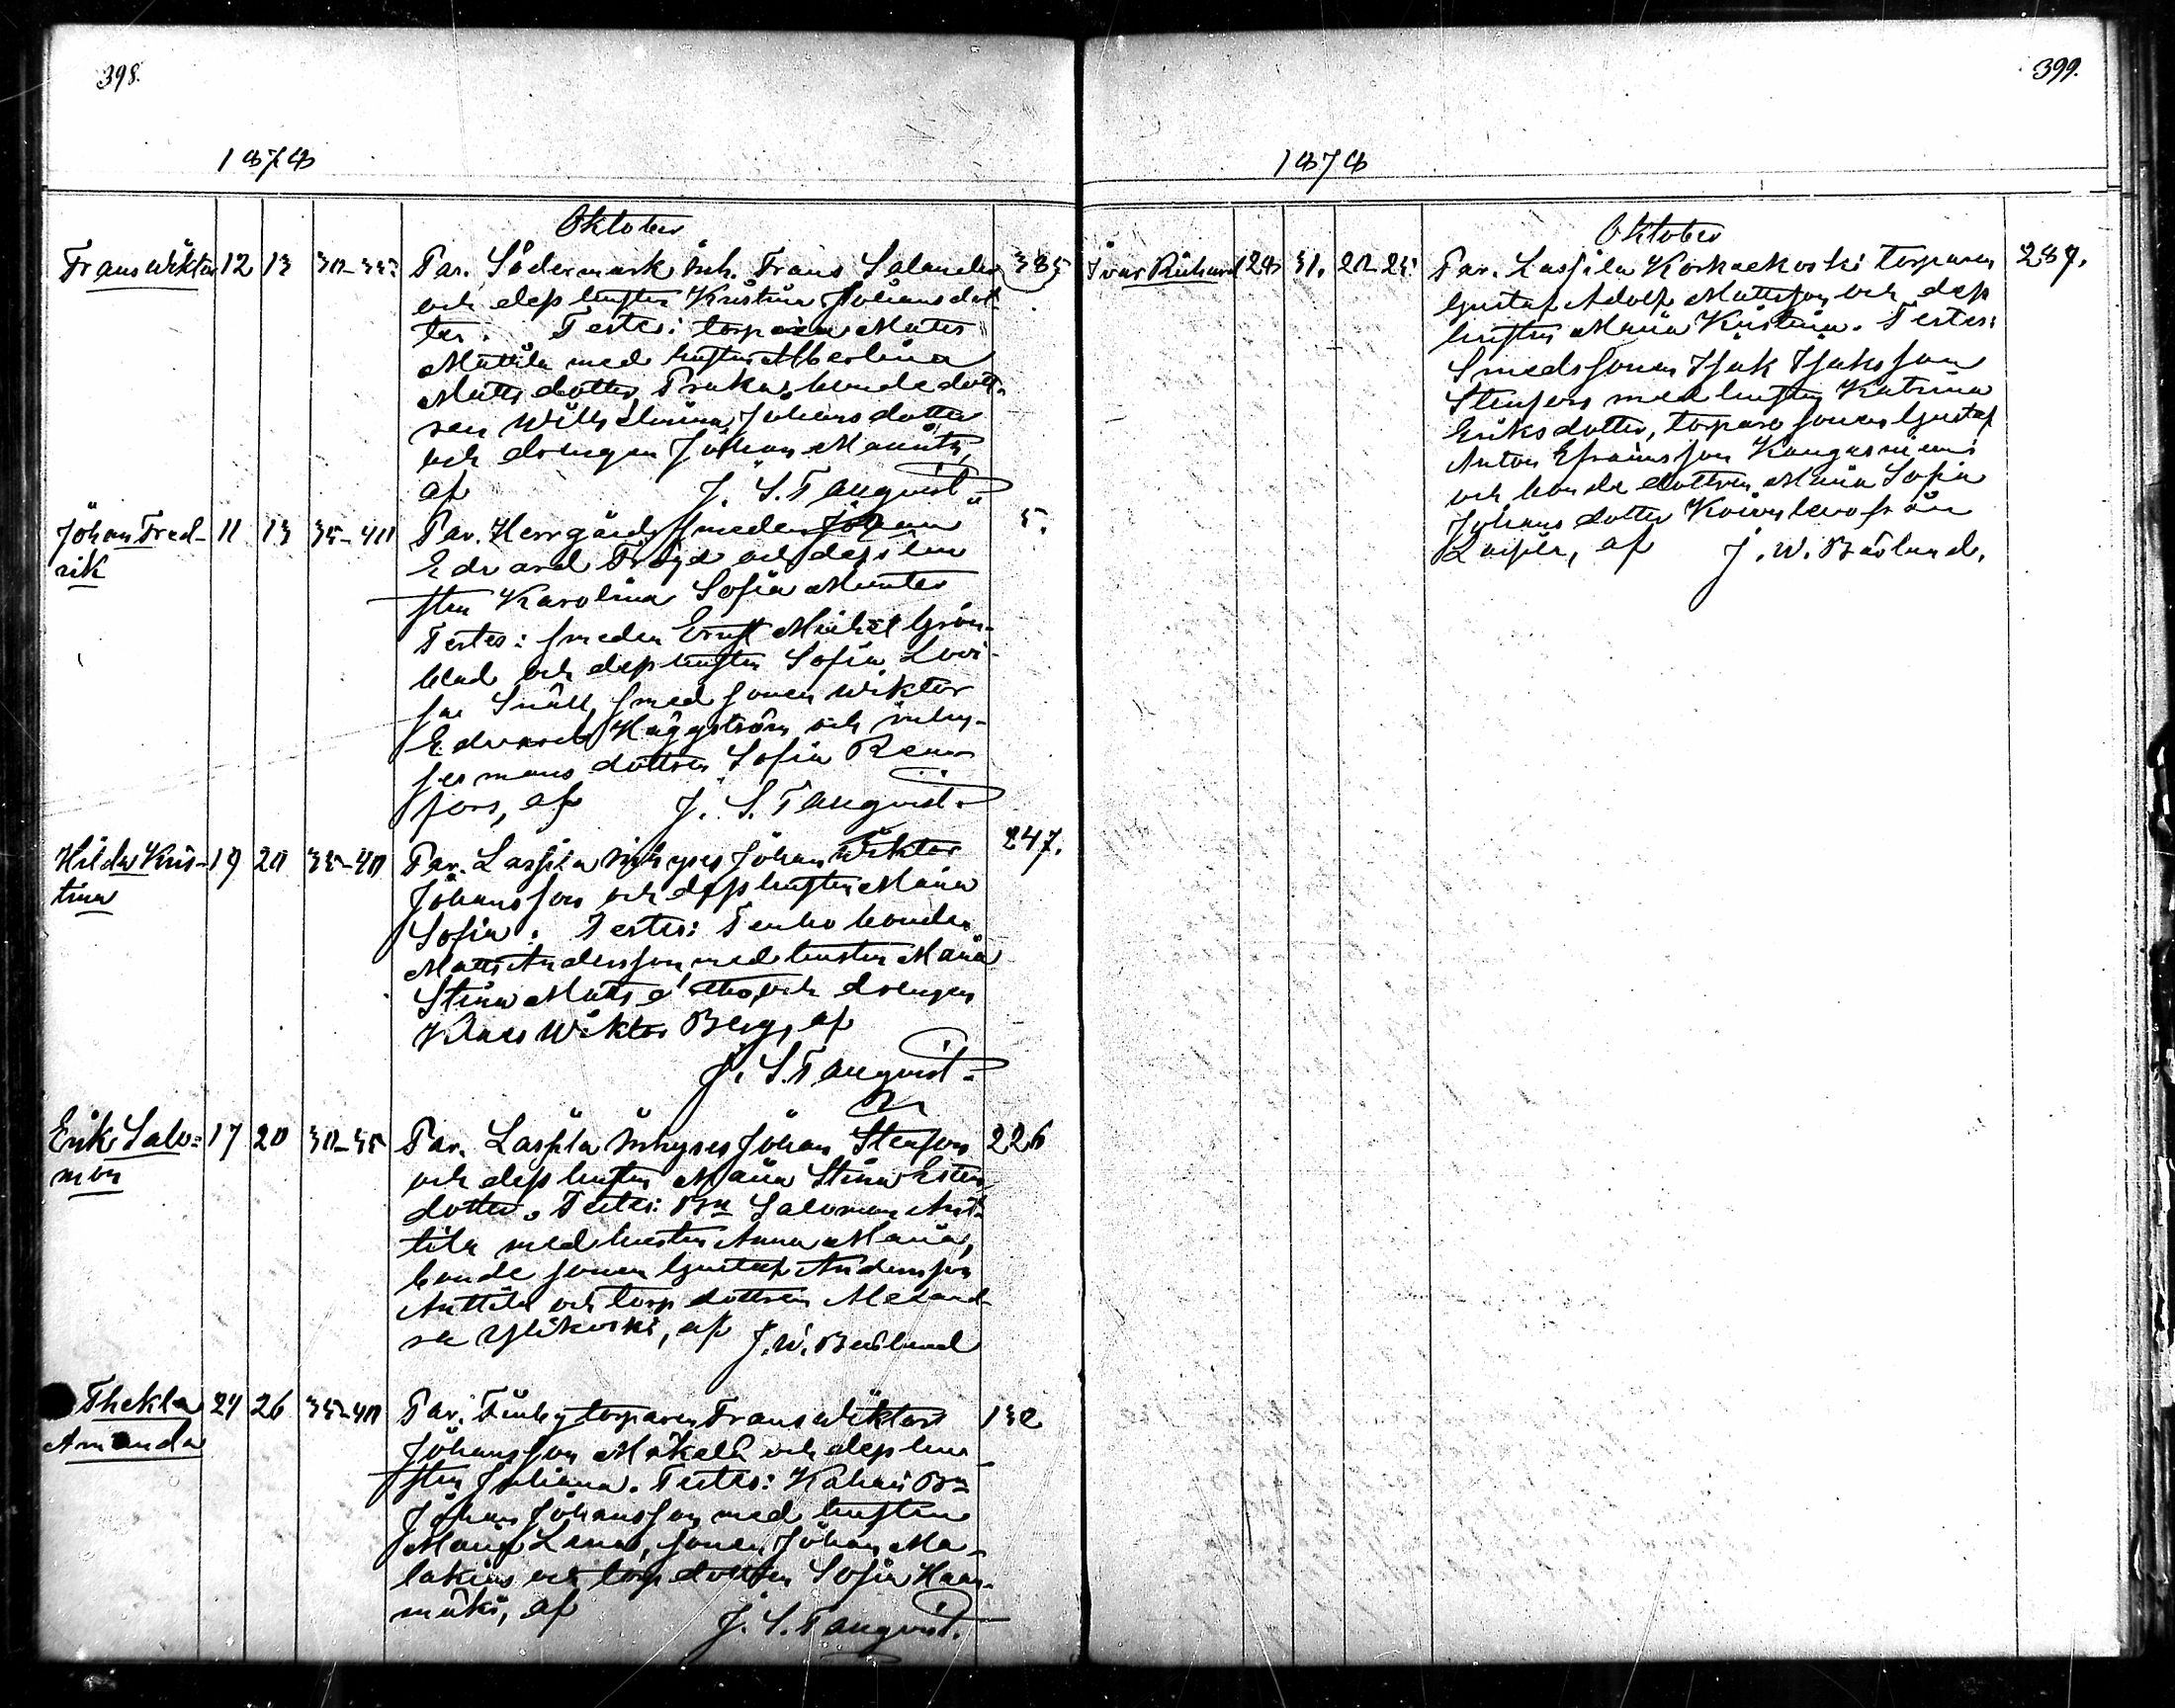 398.
1878
Oktober
Frans Wiktor 12 13 30-35 Par. Södermark inh. Frans Salander 385
och dess hustru Kristina Johansdot-
ter. Testes: torparen Matts
Mattila med hustru Albertina
Matts dotter, Prukas bonde dott-
ren Wilhelmina Johans dotter
och drengen Johan Mannts,
af J. S. Tanqvist.
Johan Fred- 11 13 35-40 Par. Herrgårds smeden Johan 5.
rik Edvard Fröjd och dess hu
stru Karolina Sofia Munter
Testes: smeden Ernst Mickel Grön-
blad och dess hustru Sofia Lovi-
sa Snäll, smed sonen Wiktor
Edvard Häggström och inhy-
ses mans dottren Sofia Ren
fors, af J. S. Tanqvist.
Hilda Kris- 19 20 35-40 Par. Lassila inhyses Johan Wiktor 247.
tina Johansson och dess hustru Maria
Sofia. Testes: Tenho bonden
Matts Andersson med hustru Maria
Stina Matts d:ter, och drengen
Klaes Wiktor Berg, af
J. S. Tanqvist.
Erik Salo= 17 20 30-35 Par. Lassila inhyses Johan Stenfors 226
mon och dess hustru Maria Stina
dotter. Testes: Bn Salomon Ant-
tila med hustru Anna Maria,
bonde sonen Gustaf Andersson
Anttila och torp dottren Alexand-
ra Ylikoski, af J. W. Bäslund
Thekla 24 26 35-40 Par. Finby torparen Frans Wiktor 132
Amanda Johansson Mäkelä och dess hu
stru Juliana. Testes: Kahari Bn
Johan Johansson med hustru
Maria Lena, sonen Johan Ma-
lakias och torp dottren Sofia Haan-
mäki, af J. S. Tanqvist.
399.
1878
Oktober
Ivar Richard 28 31. 20-25 Par. Lassila Korkaekoski torparen 287.
Gustaf Adolf Mattsson och dess
hustru Maria Kristina. Testes:
Smedssonen Isak Isaksson
Stenfors med hustru Katrina
Eriks dotter, torpare sonen Gustaf
Anton Efraimsson Kangasniemi
och bonde dottren Maria Sofia
Johans dotter från
Laspila, af J. W. Bäslund.